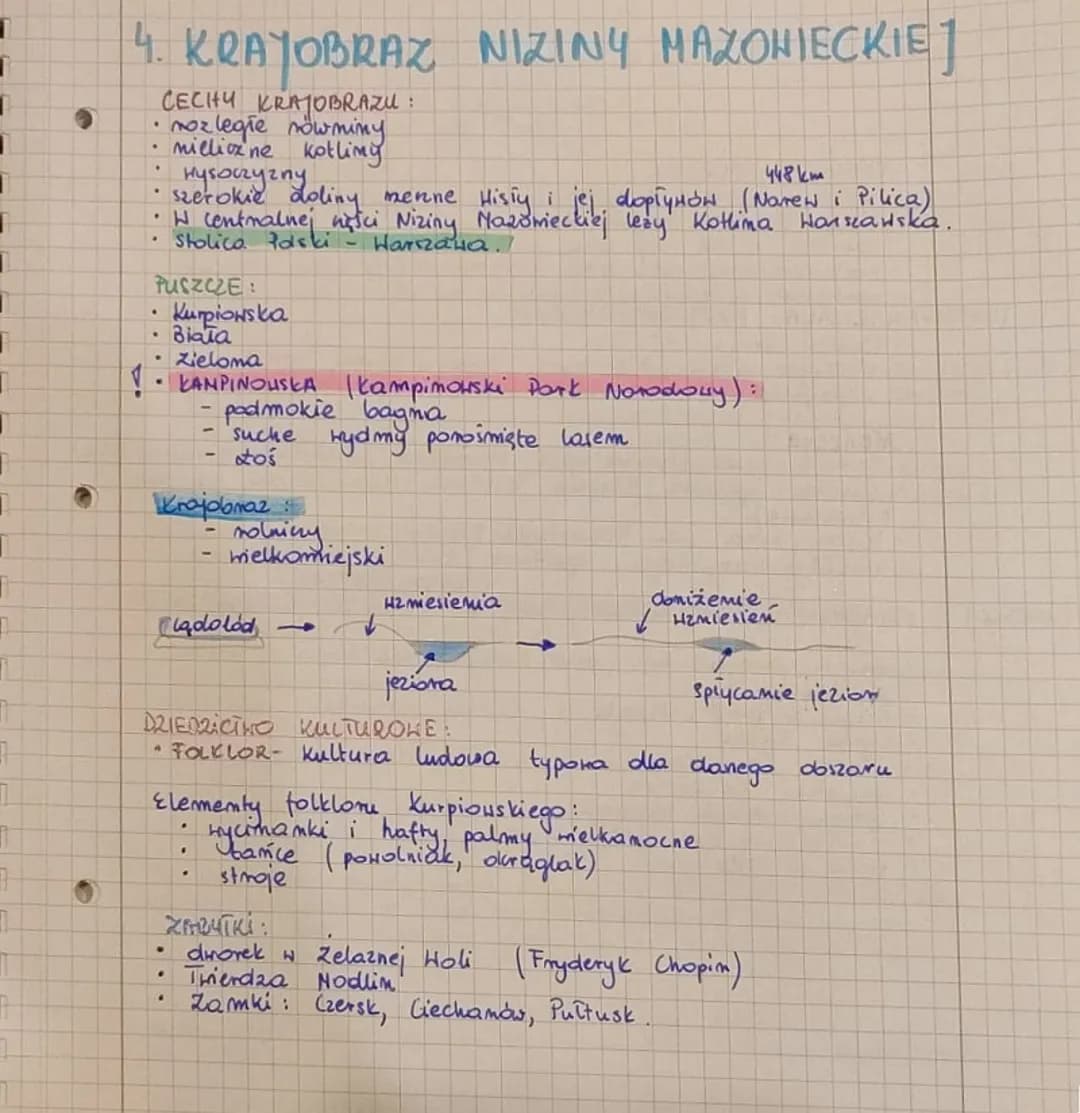 4. KRAJOBRAZ NIZINY MAZOWIECKIEJ
CECHY KRAJOBRAZU:
• rozległe równiny
• nieliczne kotliny
• wysoczyzny
448 km
• szerokie doliny rzenne Wisły i jej dopływów (Narew i Pilica)
• W centralnej części Niziny Mazowieckiej leży Kotlina Warszawska.
• Stolica Polski - Warszawa.
PUSZCZE:
• Kurpiowska
• Biała
• Zielona
! • KAMPINOWSKA (Kampinowski Park Narodowy):
- podmokłe bagna
- suche wydmy porośnięte lasem
- łoś
Krajobraz:
- rolniczy
- wielkomiejski
lądolód → wzniesienia → obniżenie wzniesień
jeziora
spłycanie jezior
DZIEDZICTWO KULTUROWE:
• FOLKLOR - kultura ludowa typowa dla danego obszaru
Elementy folkloru Kurpiowskiego:
• wycinanki i hafty, palmy wielkanocne
• tańce (powolniak, okrąglak)
• stroje
ZABYTKI:
• dworek w Żelaznej Woli (Fryderyk Chopin)
• Twierdza Modlin
• Zamki: Czersk, Ciechanów, Pułtusk.